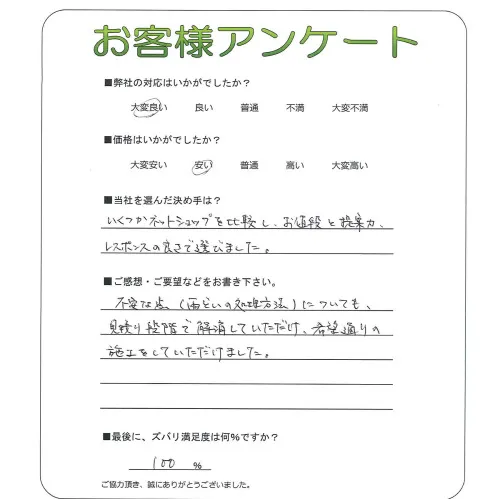 お客様アンケート
■弊社の対応はいかがでしたか？
大変良い 良い 普通 不満 大変不満
■価格はいかがでしたか？
大変安い 安い 普通 高い 大変高い
■当社を選んだ決め手は？
いくつかネットショップを比較し、お値段と提案力、
レスポンスの良さで選びました。
■ご感想・ご要望などをお書き下さい。
不安な点（雨どいの処理方法）についても、
見積り段階で解消していただけ、希望通りの
施工をしていただけました。
■最後に、ズバリ満足度は何％ですか？
100 %
ご協力頂き、誠にありがとうございました。